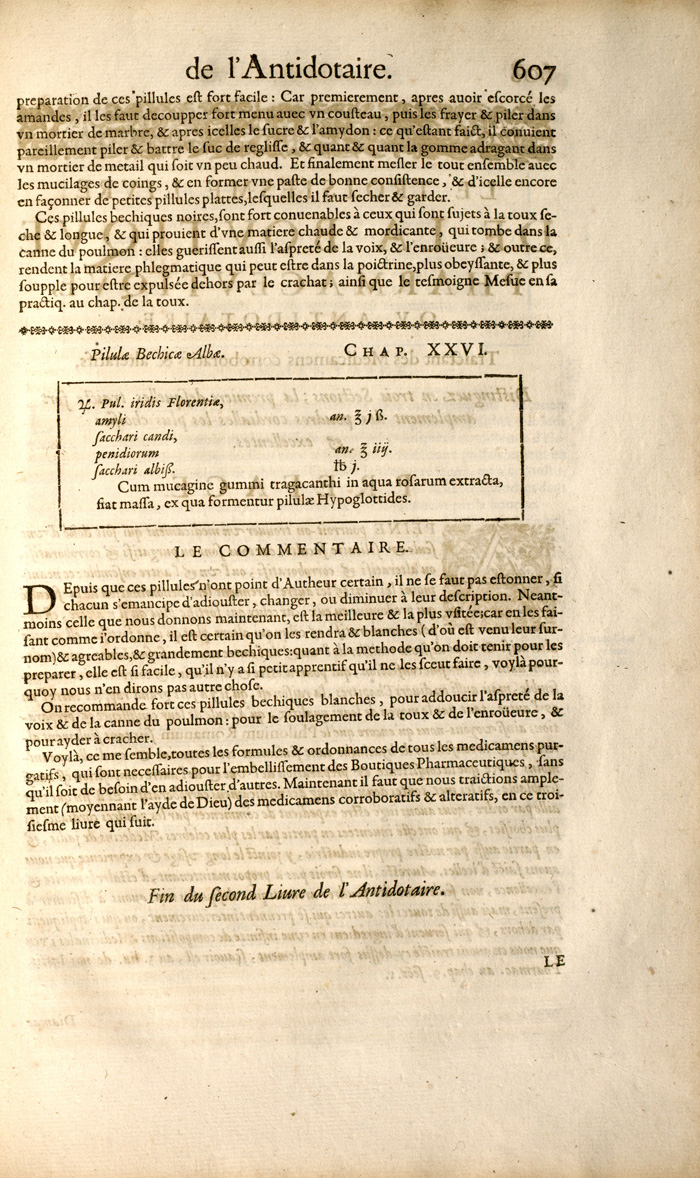 de l'Antidotaire. 607
preparation de ces pillules eſt fort facile : Car premierement, apres auoir eſcorcé les
amandes, il les faut decoupper fort menu auec vn couſteau, puis les frayer & piler dans
vn mortier de marbre, & apres icelles le ſucre & l'amydon : ce qu'eſtant faict, il conuient
pareillement piler & battre le ſuc de regliſſe, & quant & quant la gomme adragant dans
vn mortier de metail qui ſoit vn peu chaud. Et finalement meſler le tout enſemble auec
les mucilages de coings, & en former vne paſte de bonne conſiſtence, & d'icelle encore
en façonner de petites pillules plattes, leſquelles il faut ſecher & garder.
Ces pillules bechiques noires, ſont fort conuenables à ceux qui ſont ſujets à la toux ſe-
che & longue, & qui prouient d'vne matiere chaude & mordicante, qui tombe dans la
canne du poulmon : elles gueriſſent auſſi l'aſpreté de la voix, & l'enroüeure ; & outre ce,
rendent la matiere phlegmatique qui peut eſtre dans la poictrine, plus obeyſſante, & plus
ſoupple pour eſtre expulſée dehors par le crachat ; ainſi que le teſmoigne Meſue en ſa
practiq. au chap. de la toux.
Pilulæ Bechicæ Albæ. CHAP. XXVI.
℞. Pul. iridis Florentiæ,
amyli an. ℥ j ß.
ſacchari candi,
penidiorum an. ℥ iiij.
ſacchari albiß. ℔ j.
Cum mucagine gummi tragacanthi in aqua roſarum extracta,
fiat maſſa, ex qua formentur pilulæ Hypoglottides.
LE COMMENTAIRE.
DEpuis que ces pillules n'ont point d'Autheur certain, il ne ſe faut pas eſtonner, ſi
chacun s'emancipe d'adiouſter, changer, ou diminuer à leur deſcription. Neant-
moins celle que nous donnons maintenant, eſt la meilleure & la plus vſitée; car en les fai-
ſant comme i'ordonne, il eſt certain qu'on les rendra & blanches (d'où eſt venu leur ſur-
nom) & agreables, & grandement bechiques: quant à la methode qu'on doit tenir pour les
preparer, elle eſt ſi facile, qu'il n'y a ſi petit apprentif qu'il ne les ſceut faire, voylà pour-
quoy nous n'en dirons pas autre choſe.
On recommande fort ces pillules bechiques blanches, pour addoucir l'aſpreté de la
voix & de la canne du poulmon : pour le ſoulagement de la toux & de l'enroüeure, &
pour ayder à cracher.
Voylà, ce me ſemble, toutes les formules & ordonnances de tous les medicamens pur-
gatifs, qui ſont neceſſaires pour l'embelliſſement des Boutiques Pharmaceutiques, ſans
qu'il ſoit de beſoin d'en adiouſter d'autres. Maintenant il faut que nous traictions ample-
ment (moyennant l'ayde de Dieu) des medicamens corroboratifs & alteratifs, en ce troi-
ſieſme liure qui ſuit.
Fin du ſecond Liure de l'Antidotaire.
LE